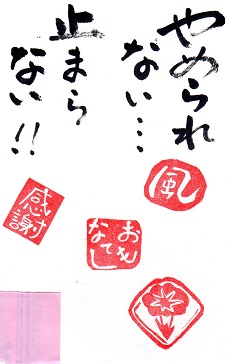 やめられ
ない…
止まら
ない!!
風
感謝
おも
てなし